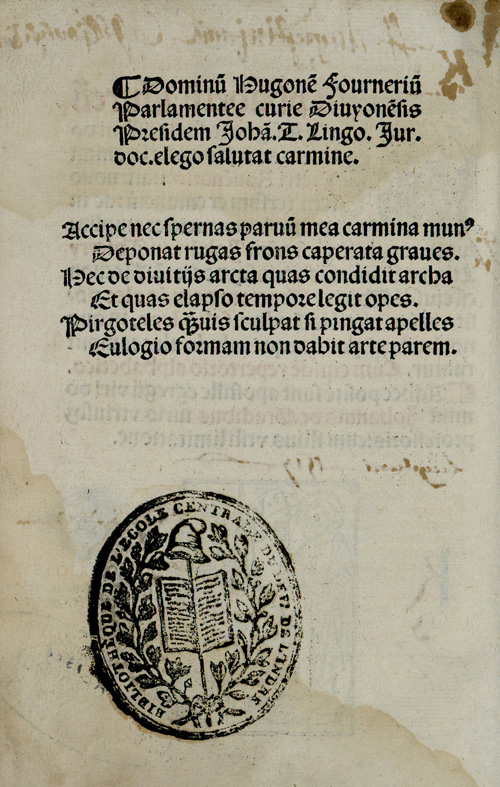 ¶ Dominū Hugonē Fourneriū
Parlamentee curie Diuyonēsis
Presidem Johā. T. Lingo. Jur.
doc. elego salutat carmine.
Accipe nec spernas paruū mea carmina munꝰ
Deponat rugas frons caperata graues.
Hec de diuitijs arcta quas condidit archa
Et quas elapso tempore legit opes.
Pirgoteles q̄uis sculpat si pingat apelles
Eulogio formam non dabit arte parem.
BIBLIOTHEQUE DE L'ECOLE CENTRALE DU DEP.^T DE L'INDRE